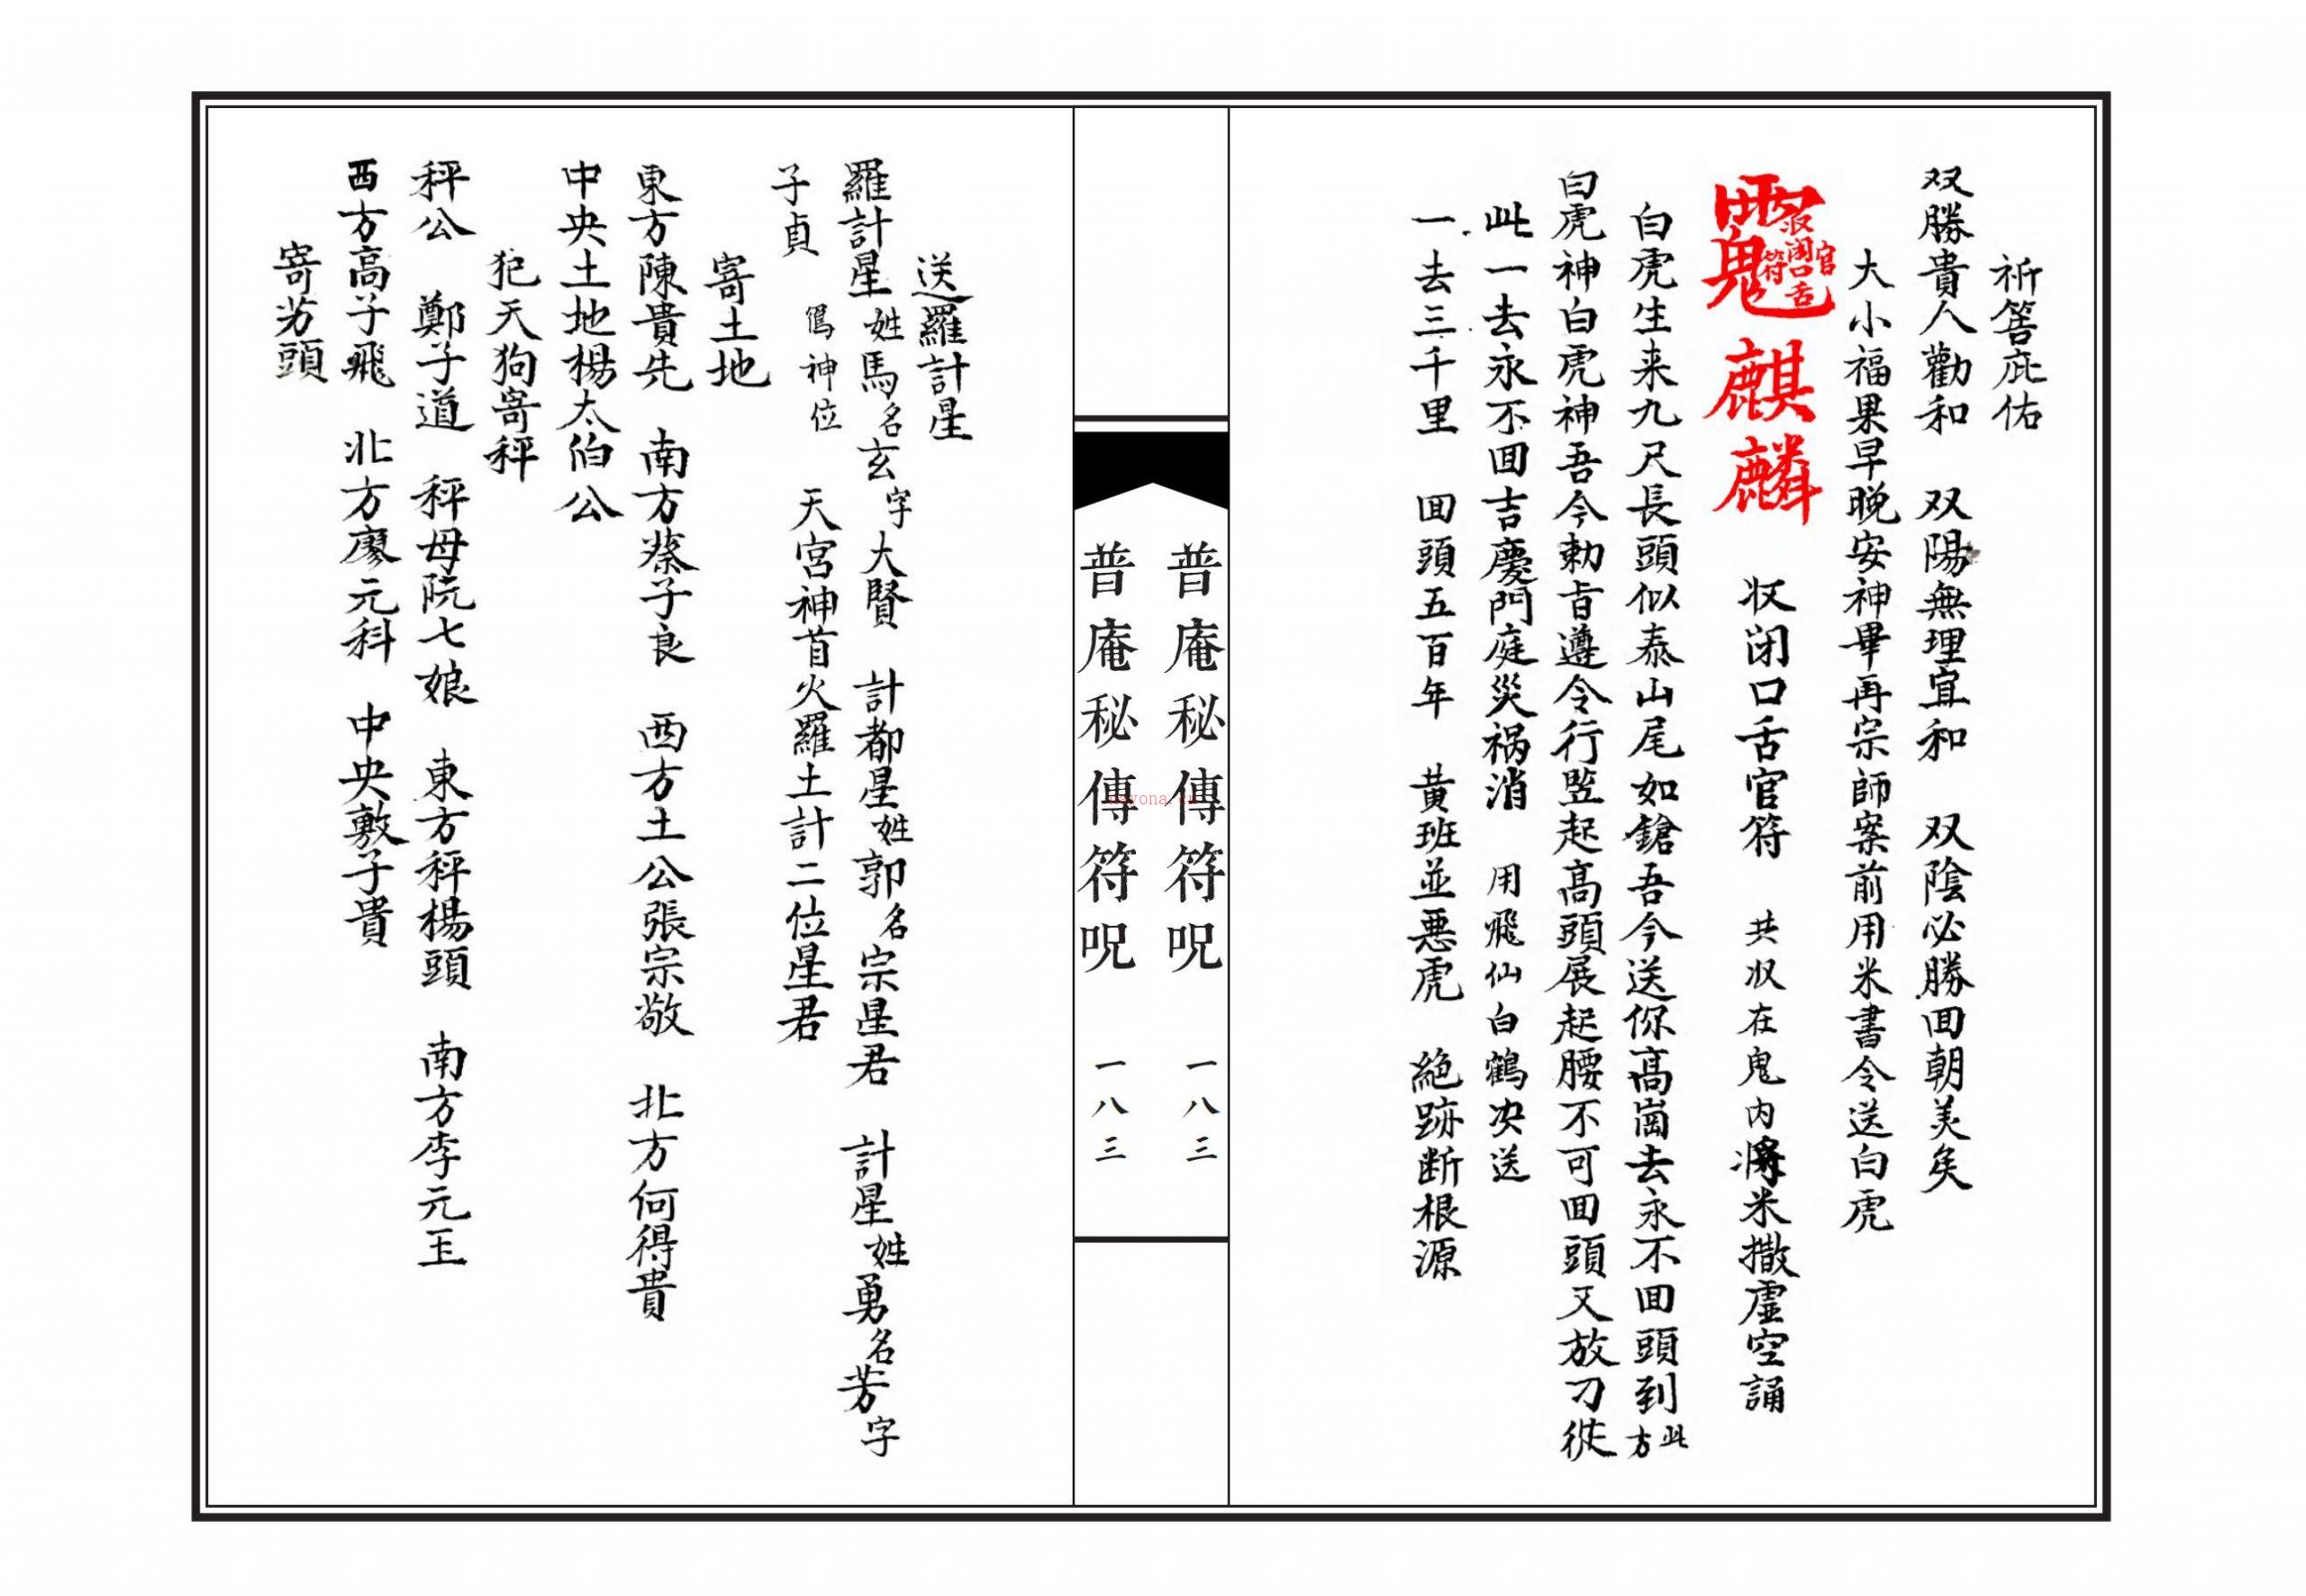 祈筶庇佑
双勝貴人勸和　双陽無理宜和　双陰必勝回朝美矣
大小福果早晚安神畢再宗師案前用米書令送白虎
麒麟　収闭口舌官符　共収在鬼内將米撒虛空誦
白虎生来九尺長頭似泰山尾如鎗吾今送你高崗去永不回頭到此方
白虎神白虎神吾今勅旨遵令行竖起高頭展起腰不可回頭又放刁從
此一去永不回吉慶門庭災祸消　用飛仙白鶴决送
一去三千里　回頭五百年　黄班並悪虎　絶跡断根源
普庵秘傳符呪　一八三
普庵秘傳符呪　一八三
送羅計星
羅計星姓馬名玄字大賢　計都星姓郭名宗星君　計星姓勇名芳字
子貞　爲神位　天宮神首火羅土計二位星君
寄土地
東方陳貴先　南方蔡子良　西方土公張宗敬　北方何得貴
中央土地楊太伯公
犯天狗寄秤
秤公　鄭子道　秤母阮七娘　東方秤楊頭　南方李元玉
西方高子飛　北方廖元科　中央敷子貴
寄芳頭